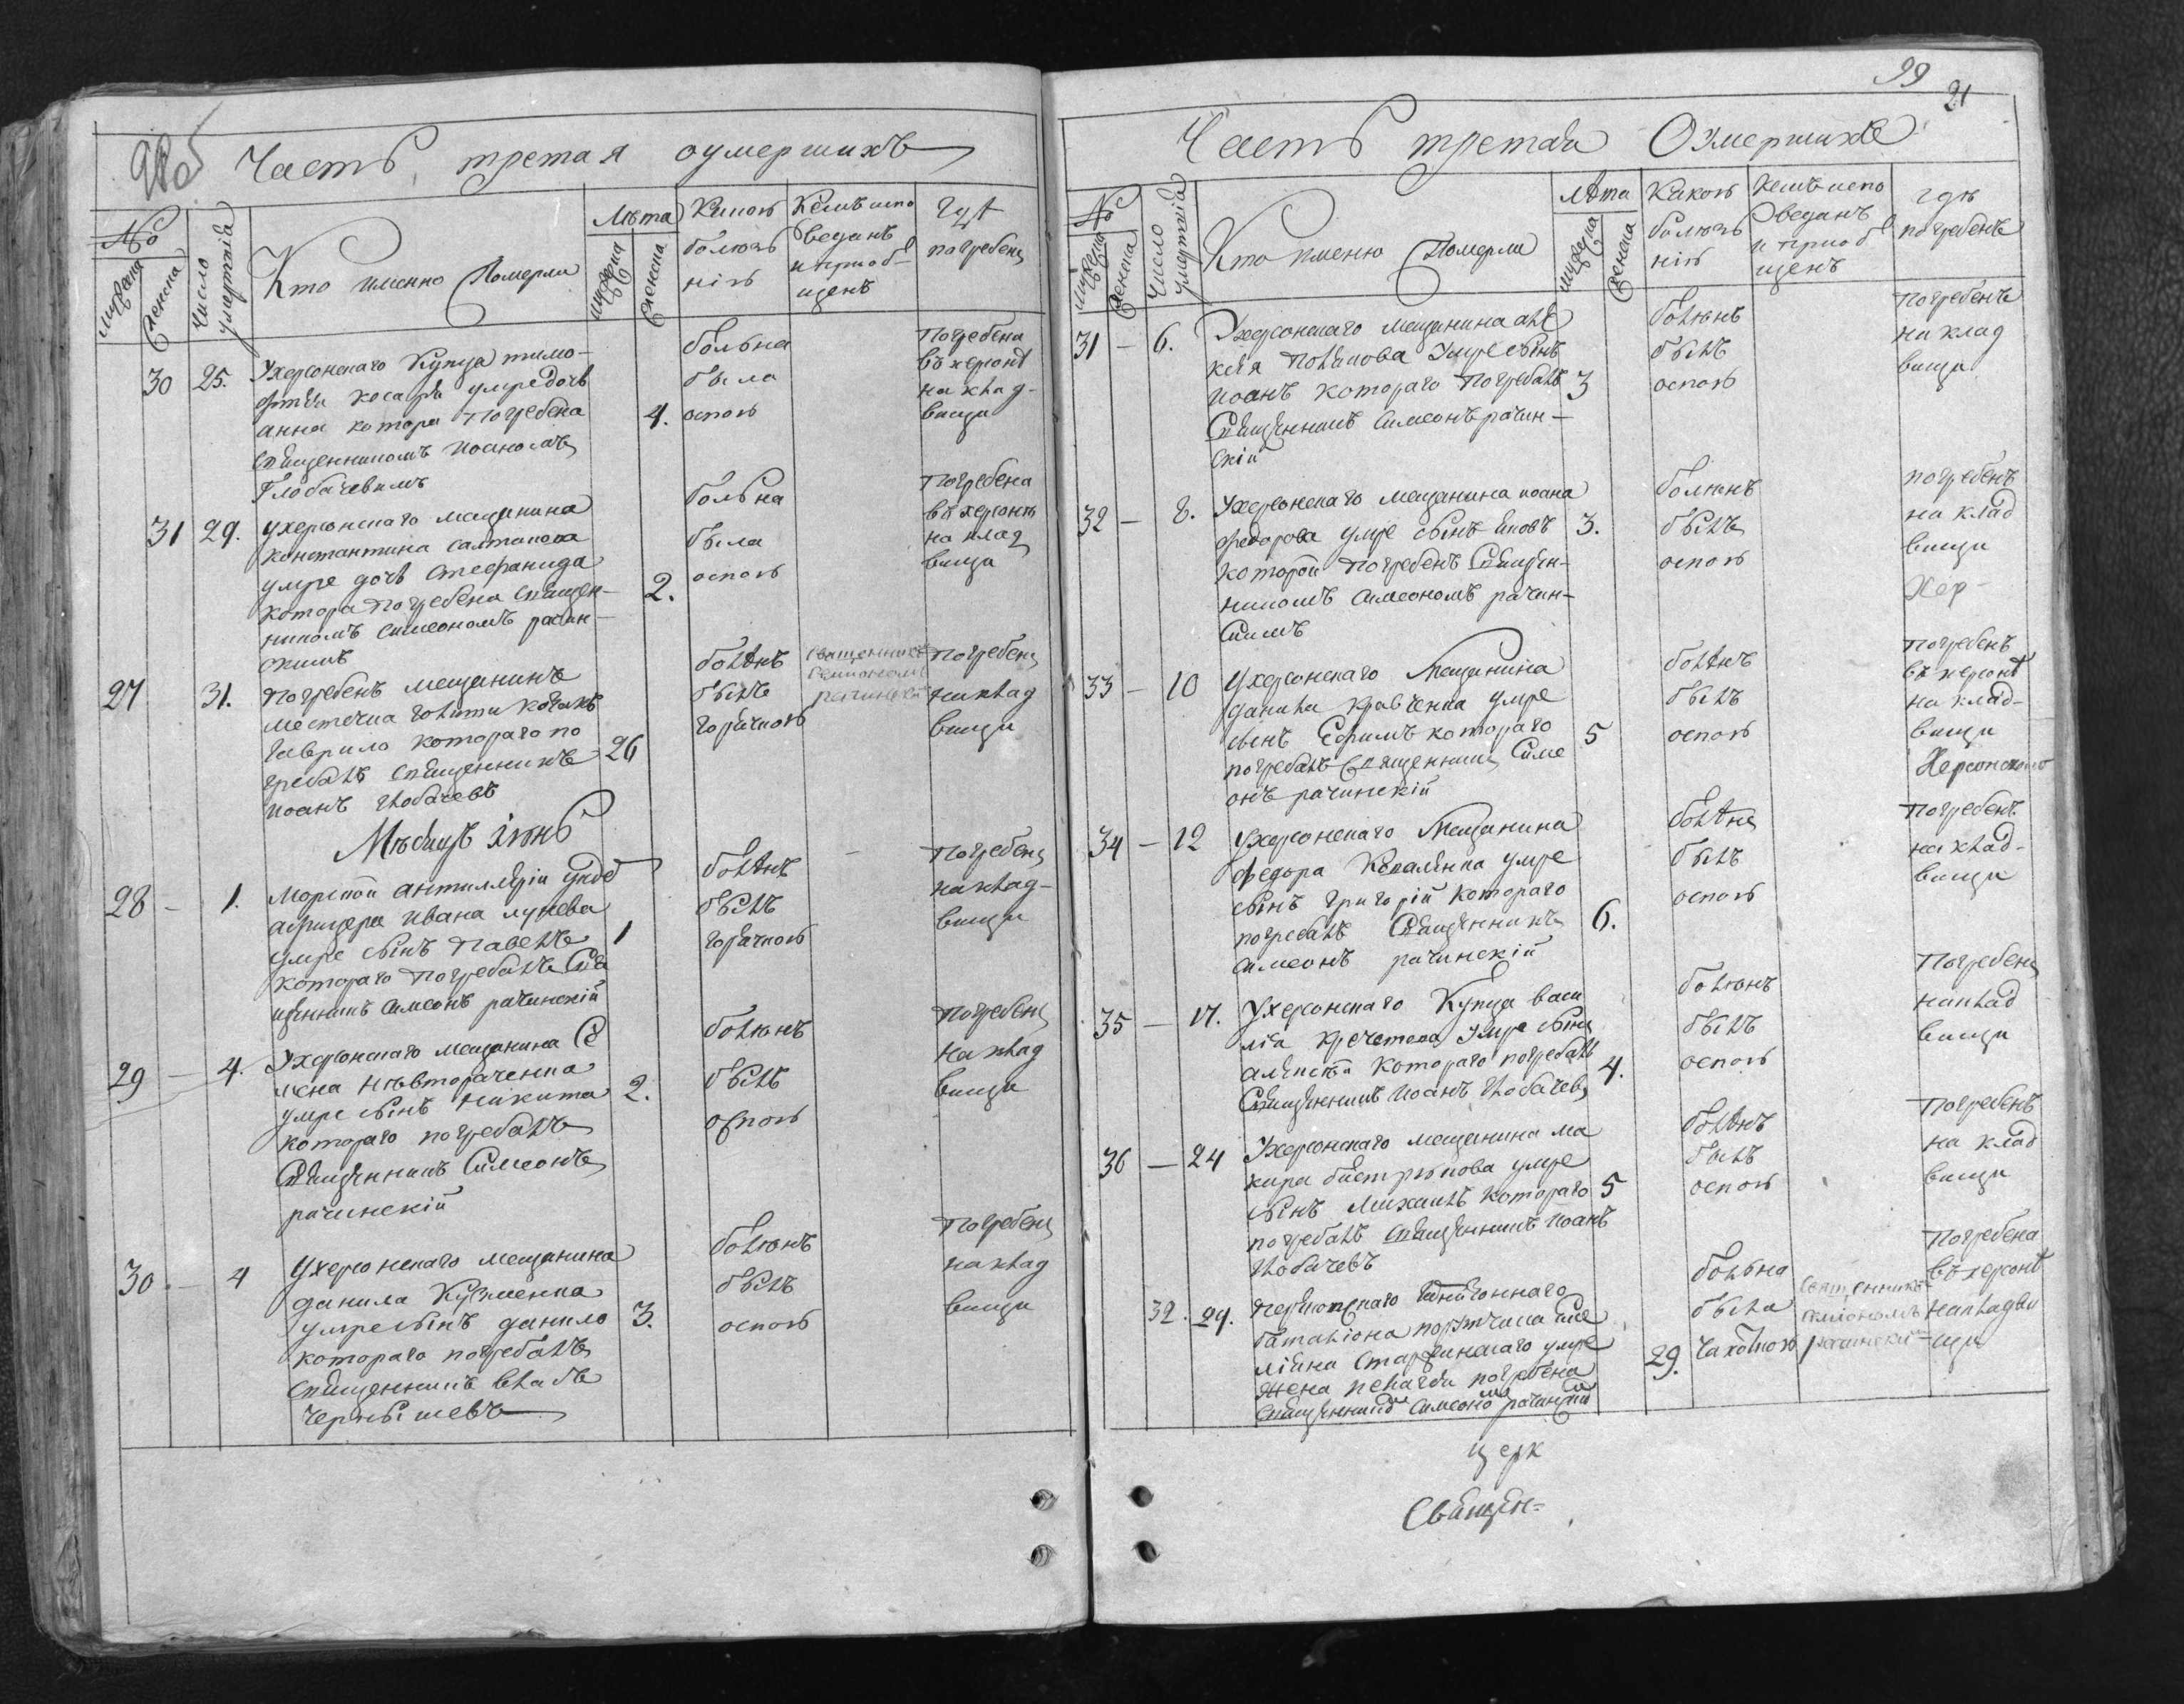 98 об
Часть третая оумершихъ
№
мужеска
женска
число умертвія
Кто именно Померли
Лѣта
мужеска
женска
Какою болезнію
Кемъ испо веданъ и приоб- щенъ
гдѣ погребенъ
30 25. Ухерсонскаго Купца тимо-
фтѣя косаря умре дочь
анна котора Погребена
Священникомъ Иоаномъ
Глобачевымъ
4.
больна
была
оспою
Погребена
въ херсонѣ
на клад-
вищи
31 29. Ухерсонскаго мещанина
константина салтанова
умре дочь Стефанида
котора погребена Священ-
никомъ Симеономъ рачин-
скимъ
2.
больна
была
оспою
Погребена
въ херсонѣ
на клад
вища
27 31. Погребенъ мещанинъ
местечка голти козакъ
гаврило котораго по
гребалъ Священникъ
Иоанъ глобачевъ
26
болѣнъ
былъ
горячкою
священникомъ
симиономъ
рачинским
Погребенъ
накклад
вищи
Мѣсяцъ іюнь
28 – 1. Морской антиллеріи ундеб
афицера Ивана лунева
умре сынъ Павелъ
котораго погребалъ Свя
щенникъ Симеонъ рачинскій
1
болѣнъ
былъ
горячкою
Погребенъ
наклад-
вищи
29 – 4. Ухерсонскаго мещанина Се
мена
умре сынъ Никита
котораго погребалъ
Священникъ Симеонъ
рачинскій
2.
боленъ
былъ
оспою
Погребенъ
на клад
вищи
30. – 4 Ухерсонскаго мещанина
данила Кузменка
умре сынъ данило
котораго погребалъ
Священникъ власъ
чернышевъ
3.
боленъ
былъ
оспою
Погребенъ
наклад
вищи
99
21
Часть третая Оумершихъ
№
мужеска
женска
Число умертвія
Кто именно Померли
лѣта
мужеска
женска
Какою болезнію
Кемъ испо веданъ и приоб щенъ
гдѣ погребенъ
31 – 6. Ухерсонскаго мещанина але
ксея Потапова Умре сынъ
иоанъ котораго Погребалъ
Священникъ Симеонъ рачин-
скій
3
боленъ
былъ
оспою
погребенъ
на клад
вищи
32 – 8. Ухерсонскаго мещанина иоана
федорова умре сынъ яковъ
которой погребенъ Священ-
никомъ Симеономъ рачин-
скимъ
3.
боленъ
былъ
оспою
погребенъ
на клад
вищи
Хер-
33 – 10 Ухерсонскаго Мещанина
данила кравченка умре
сынъ Ефимъ котораго
погребалъ Священникъ Симе
онъ рачинскій
5
болѣнъ
былъ
оспою
Погребенъ
въ херсонѣ
на клад-
вищи
Херсонском
34 – 12 Ухерсонскаго Мещанина
Федора Коваленка умре
сынъ григорій котораго
погребалъ Священникъ
Симеонъ рачинскій
6.
болѣнъ
былъ
оспою
Погребенъ
на клад-
вищи
35 – 17. Ухерсонскаго Купца васи
лія кречетова умре сынъ
алексѣй котораго погребалъ
Священникъ Иоанъ глобачевъ
4.
боленъ
былъ
оспою
Погребенъ
наклад
вищи
36 – 24 Ухерсонскаго мещанина ма
кара быстрикова умре
сынъ Михаилъ котораго
погребалъ Священникъ Иоанъ
глобачевъ
5
болѣнъ
былъ
оспою
Погребенъ
на клад
вищи
32. 29. Херсонскаго гарнизоннаго
баталіона порутчика
умре
жена пелагея погребена
Священникомъ Симеономъ рачинским
29.
больна
была
чахоткою
священникъ
симиономъ
рачинский
Погребена
въ херсонѣ
накладви
щи
церк
Священ=